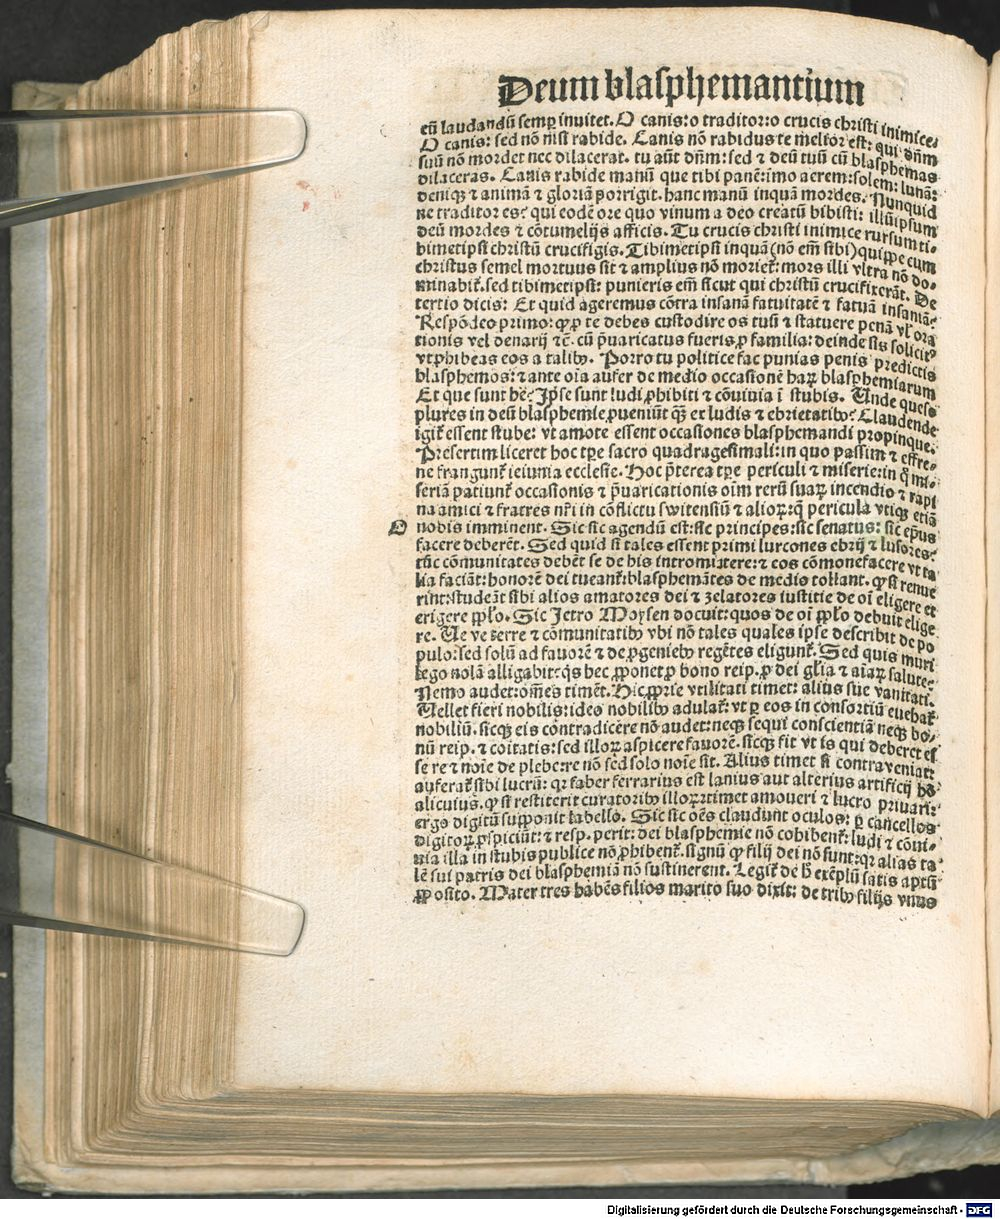 Deum blasphemantium
eū laudandū semꝑ inuitet. O canis: o traditor: o crucis christi inimice:
O canis: sed nō nisi rabide. Canis nō rabidus te melior est: qui dn̄m
suū nō mordet nec dilacerat. tu aūt dn̄m: sed ⁊ deū tuū cū blasphemas
dilaceras. Canis rabide manū que tibi panē: imo aerem: solem: lunā:
deniqꝫ ⁊ animā ⁊ gloriā porrigit. hanc manū inquā mordes. Nunquid
ne traditor es? qui eodē ore quo vinum a deo creatū bibisti: illūipsum
deū mordes ⁊ cōtumelijs afficis. Tu crucis christi inimice rursum ti-
bimetipsi christū crucifigis. Tibimetipsi inquā (nō em̄ sibi) quippe cum
christus semel mortuus sit ⁊ amplius nō moriet̄: mors illi vltra nō do-
minabit̄. sed tibimetipsi: punieris em̄ sicut qui christū crucifixerāt. De
tertio dicis: Et quid ageremus cōtra insanā fatuitatē ⁊ fatuā insaniā?
Respōdeo primo: ꝙ ꝑ te debes custodire os tuū ⁊ statuere penā vl̓ ora
tionis vel denarij ⁊c̄. cū p̄uaricatus fueris ꝓ familia: deinde sis solicitꝰ
vt ꝓhibeas eos a talibꝫ. Porro tu politice fac punias penis predictis
blasphemos: ⁊ ante oīa aufer de medio occasionē haꝝ blasphemiarum
Et que sunt he? Ipse sunt ludi ꝓhibiti ⁊ cōuiuia ī stubis. Unde queso
plures in deū blasphemie ꝓueniūt q̄ꝫ ex ludis ⁊ ebrietatibꝫ? Claudende
igit̄ essent stube: vt amote essent occasiones blasphemandi propinque.
Presertim liceret hoc tp̄e sacro quadragesimali: in quo passim ⁊ effre-
ne frangunt̄ ieiunia ecclesie. Hoc p̄terea tp̄e periculi ⁊ miserie: in q̄ mi-
seriā patiunt̄ occasionis ⁊ p̄uaricationis oīm rerū suaꝝ incendio ⁊ rapi
na amici ⁊ fratres nr̄i in cōflictu switensiū ⁊ alioꝝ: q̄ pericula vtiqꝫ etiā
O nobis imminent. Sic sic agendū est: sic principes: sic senatus: sic ep̄us
facere deberēt. Sed quid si tales essent primi lurcones ebrij ⁊ lusores?
tūc cōmunitates debēt se de his intromittere: ⁊ eos cōmonefacere vt ta
lia faciāt: honorē dei tueant̄: blasphemātes de medio tollant. ꝙ si renue
rint: studeāt sibi alios amatores dei ⁊ zelatores iustitie de oī eligere et
erigere pp̄lo. Sic Jetro Moysen docuit: quos de oī pp̄lo debuit elige
re. Ue ve terre ⁊ cōmunitatibꝫ vbi nō tales quales ipse describit de po
pulo: sed solū ad fauorē ⁊ de ꝓgeniebꝫ regētes eligunt̄. Sed quis muri
lego nolā alligabit: q̄s hec ꝓponet ꝓ bono reip. ꝓ dei gl̄ia ⁊ aīaꝝ salute?
Nemo audet: om̄es timēt. Hic ꝓprie vtilitati timet: alius sue vanitati.
Uellet fieri nobilis: ideo nobilibꝫ adulat̄: vt ꝑ eos in consortiū euehat̄
nobiliū. sicqꝫ eis contradicere nō audet: neqꝫ sequi conscientiā neqꝫ bo-
nū reip. ⁊ cōitatis: sed illoꝝ aspicere fauorē. sicqꝫ fit vt is qui deberet es
se re ⁊ noīe de plebe: re nō sed solo noīe sit. Alius timet si contraveniat:
auferat̄ sibi lucrū: qr faber ferrarius est lanius aut alterius artificij hō
alicuius. ꝙ si restiterit curatoribꝫ illoꝝ: timet amoueri ⁊ lucro priuari:
ergo digitū supponit labello. Sic sic oēs claudunt oculos: ꝑ cancellos
digitoꝝ ꝑspiciūt: ⁊ resp. perit: dei blasphemie nō cohibent̄: ludi ⁊ cōui-
uia illa in stubis publice nō ꝓhibent̄. signū ꝙ filij dei nō sunt: qr alias ta
lē sui patris dei blasphemiā nō sustinerent. Legit̄ de h̄ exēplū satis aptū
ꝓposito. Mater tres habēs filios marito suo dixit: de tribꝫ filijs vnus
Digitalisierung gefördert durch die Deutsche Forschungsgemeinschaft - DFG